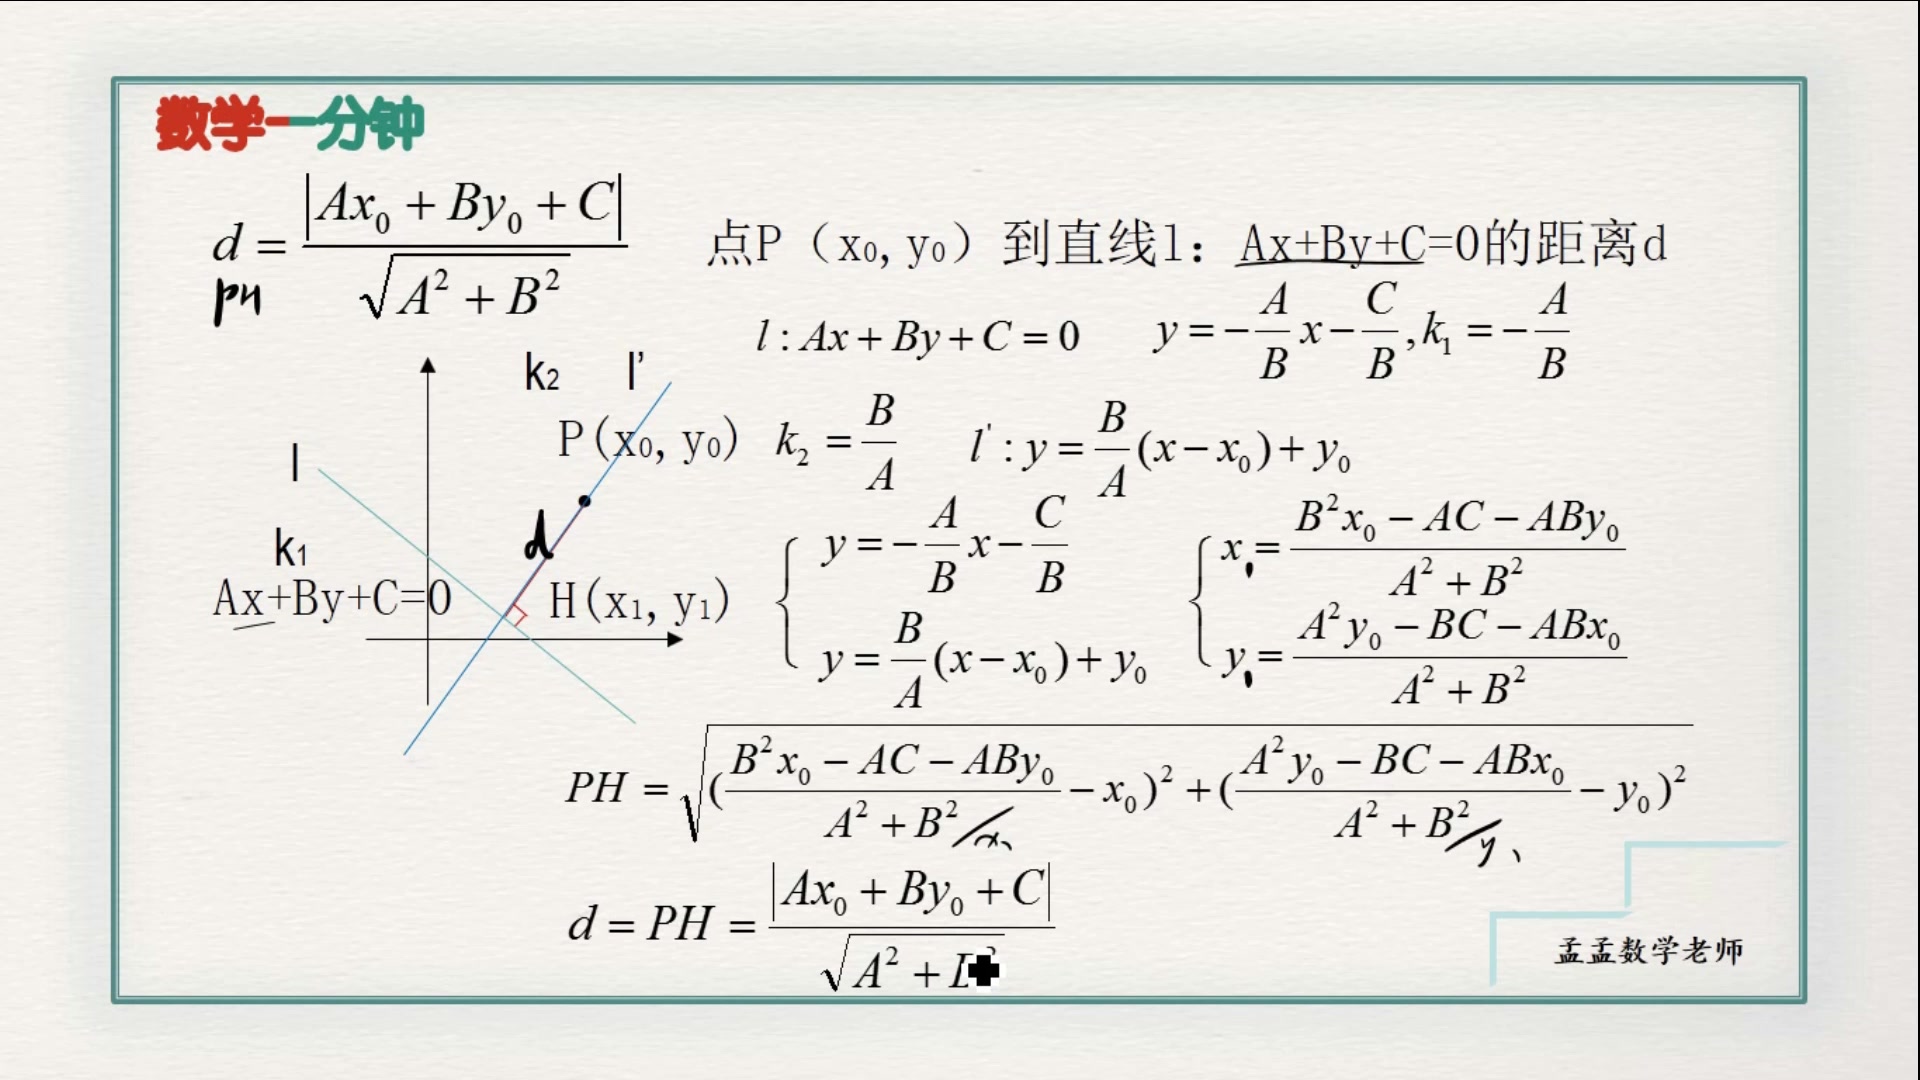 数学一分钟
d = |Ax₀ + By₀ + C| / √(A² + B²)
PH
点P（x₀, y₀）到直线l：Ax+By+C=0的距离d
l : Ax + By + C = 0   y = −(A/B)x − C/B, k₁ = −A/B
k₂ l’
P(x₀, y₀)
k₂ = B/A   l' : y = (B/A)(x − x₀) + y₀
l
d
k₁
Ax+By+C=0
H(x₁, y₁)
{ y = −(A/B)x − C/B
y = (B/A)(x − x₀) + y₀
{ x₁ = (B²x₀ − AC − ABy₀) / (A² + B²)
y₁ = (A²y₀ − BC − ABx₀) / (A² + B²)
PH = √(((B²x₀ − AC − ABy₀) / (A² + B²) − x₀)² + ((A²y₀ − BC − ABx₀) / (A² + B²) − y₀)²)
x₁ y₁
d = PH = |Ax₀ + By₀ + C| / √(A² + B²)
孟孟数学老师